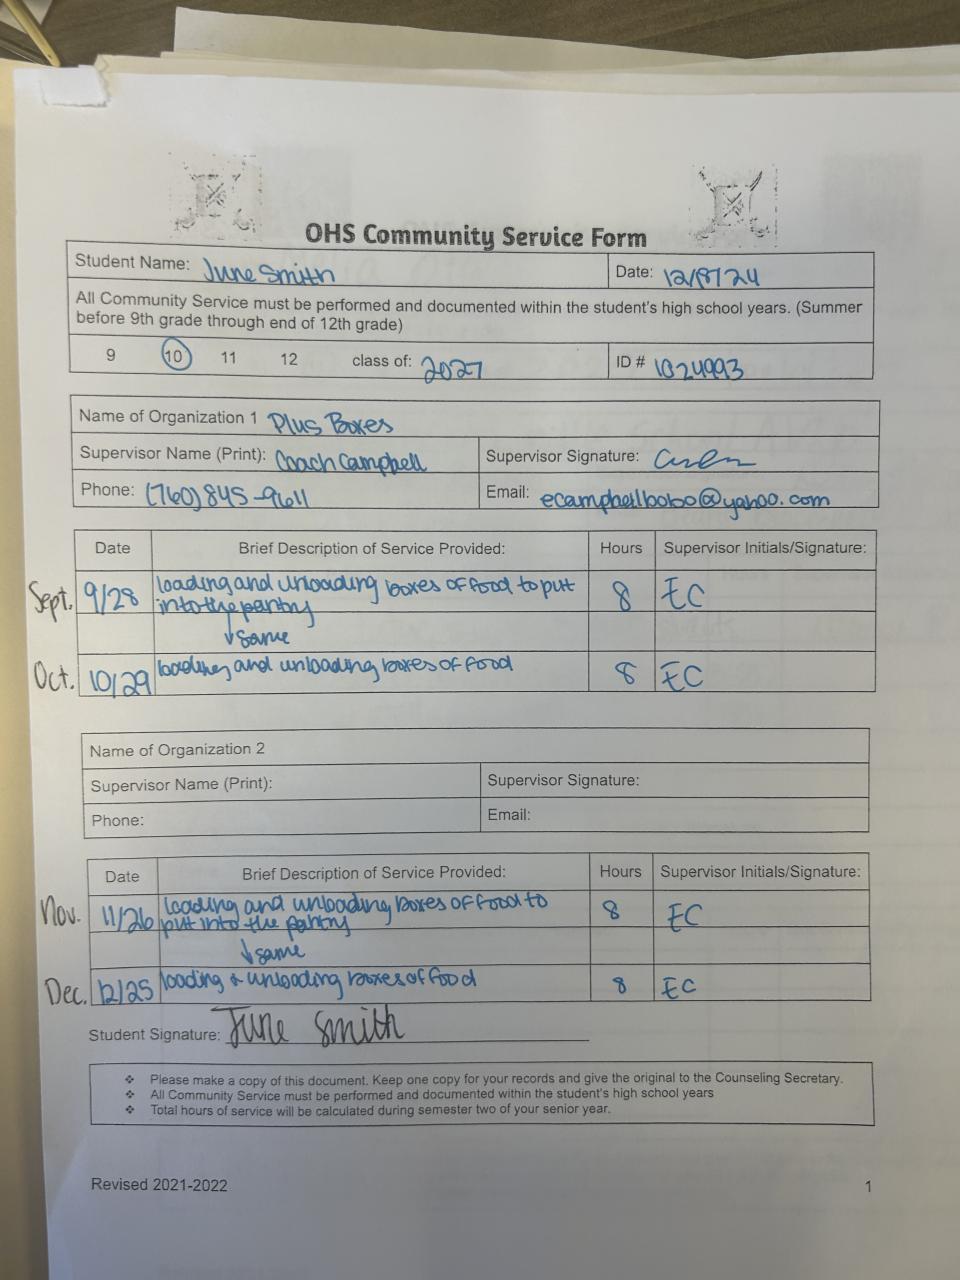 OHS Community Service Form
Student Name: June Smith Date: 12/8/24
All Community Service must be performed and documented within the student's high school years. (Summer
before 9th grade through end of 12th grade)
9 10 11 12 class of: 2027 ID # 1024993
Name of Organization 1 Plus Boxes
Supervisor Name (Print): Coach Campbell Supervisor Signature:
Phone: (760) 845-9611 Email:
Date Brief Description of Service Provided: Hours Supervisor Initials/Signature:
Sept. 9/28 loading and unloading boxes of food to put 8 EC
into the pantry
↓ same
Oct. 10/29 loading and unloading boxes of food 8 EC
Name of Organization 2
Supervisor Name (Print): Supervisor Signature:
Phone: Email:
Date Brief Description of Service Provided: Hours Supervisor Initials/Signature:
Nov. 11/26 loading and unloading boxes of food to 8 EC
put into the pantry
↓ same
Dec. 12/25 loading + unloading boxes of food 8 EC
Student Signature: June Smith
❖ Please make a copy of this document. Keep one copy for your records and give the original to the Counseling Secretary.
❖ All Community Service must be performed and documented within the student's high school years
❖ Total hours of service will be calculated during semester two of your senior year.
Revised 2021-2022 1